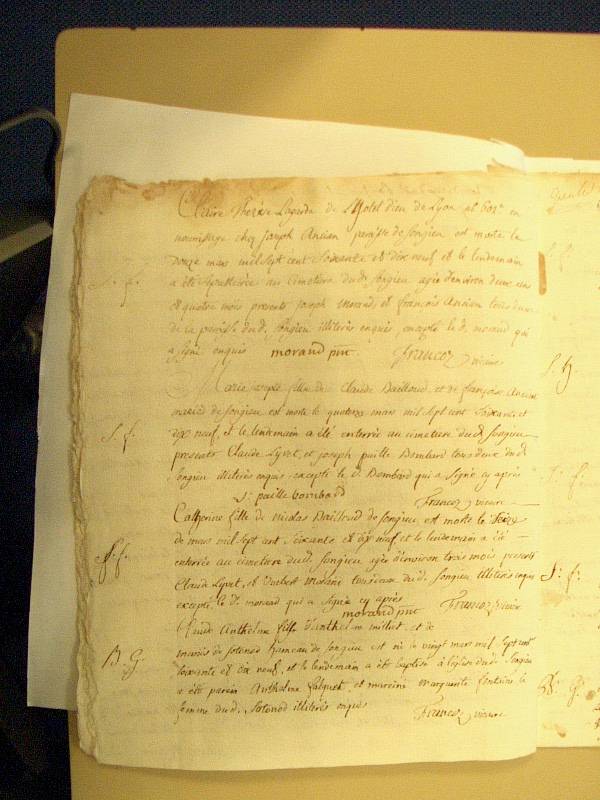 Claire Therèse Lagarda de L'hotel dieu de Lyon en
nourrisage chez Joseph Ancian de Songieu est morte le
Douze mars mil sept cent soixante et dix neuf et le lendemain
S. f.
a été sepulturée au cimetiere dud. Songieu agée d'environ deux ans
et quatre mois presents Joseph morand, et françois Ancian tous deux
de la dud. Songieu illiterés enquis, excepté le d. morand qui
a signé enquis morand Francoz vicaire
Marie fille de Claude Dailloud, et de françoise Ancian
mariés de Songieu est morte le quatorze mars mil sept cent soixante et
S. f.
dix neuf, et le lendemain a été enterrée au cimetiere dud. Songieu
presents Claude Lyvet, et Joseph paille Bombard tous deux dud.
Songieu illiterés enquis excepté le d. Bombard qui a signé cy après
J. paille bombard Francoz vicaire
Catherine fille de nicolas Dailloud de Songieu, est morte le Seize
de mars mil sept cent soixante et dix neuf et le lendemain a été
S. f.
enterrée au cimetiere dud. Songieu agée d'environ trois mois presents
Claude Lyvet, et morand tous deux dud. Songieu illiterés enquis
excepté le d. morand qui a signé cy après
morand Francoz vicaire
Claude Anthelme fils d'anthelme milliet, et de
mariés de Sotonod hameau de Songieu est né le vingt mars mil sept cent
B. G.
soixante et dix neuf, et le lendemain a été baptisé à l'église dud. Songieu
a été parein Anthelme et mareine marguerite
femme dud. Sotonod illiterés enquis
Francoz vicaire
S. f.
S. f.
B. G.